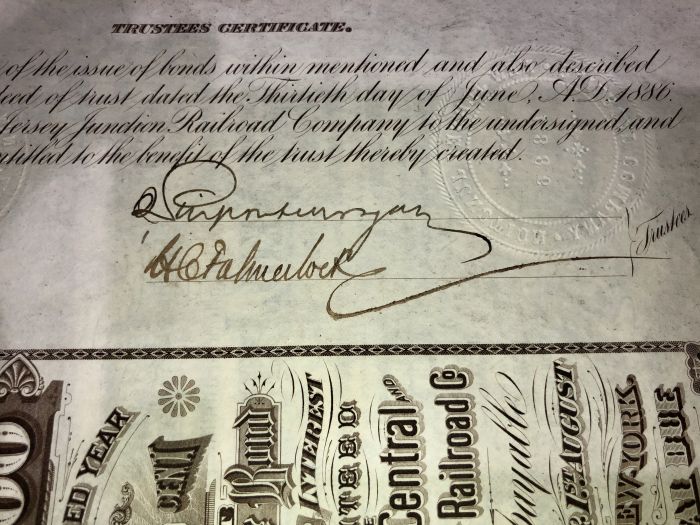 TRUSTEES CERTIFICATE.
of the issue of bonds within mentioned and also described
deed of trust dated the Thirtieth day of June, A.D. 1886.
Jersey Junction Railroad Company to the undersigned, and
entitled to the benefit of the trust thereby created.
J Pierpont Morgan
Trustees
00
ED YEAR
CENT
INTEREST
TEED
Central AND
Railroad Co
payable
1ST AUGUST
EW-YORK.
DUE